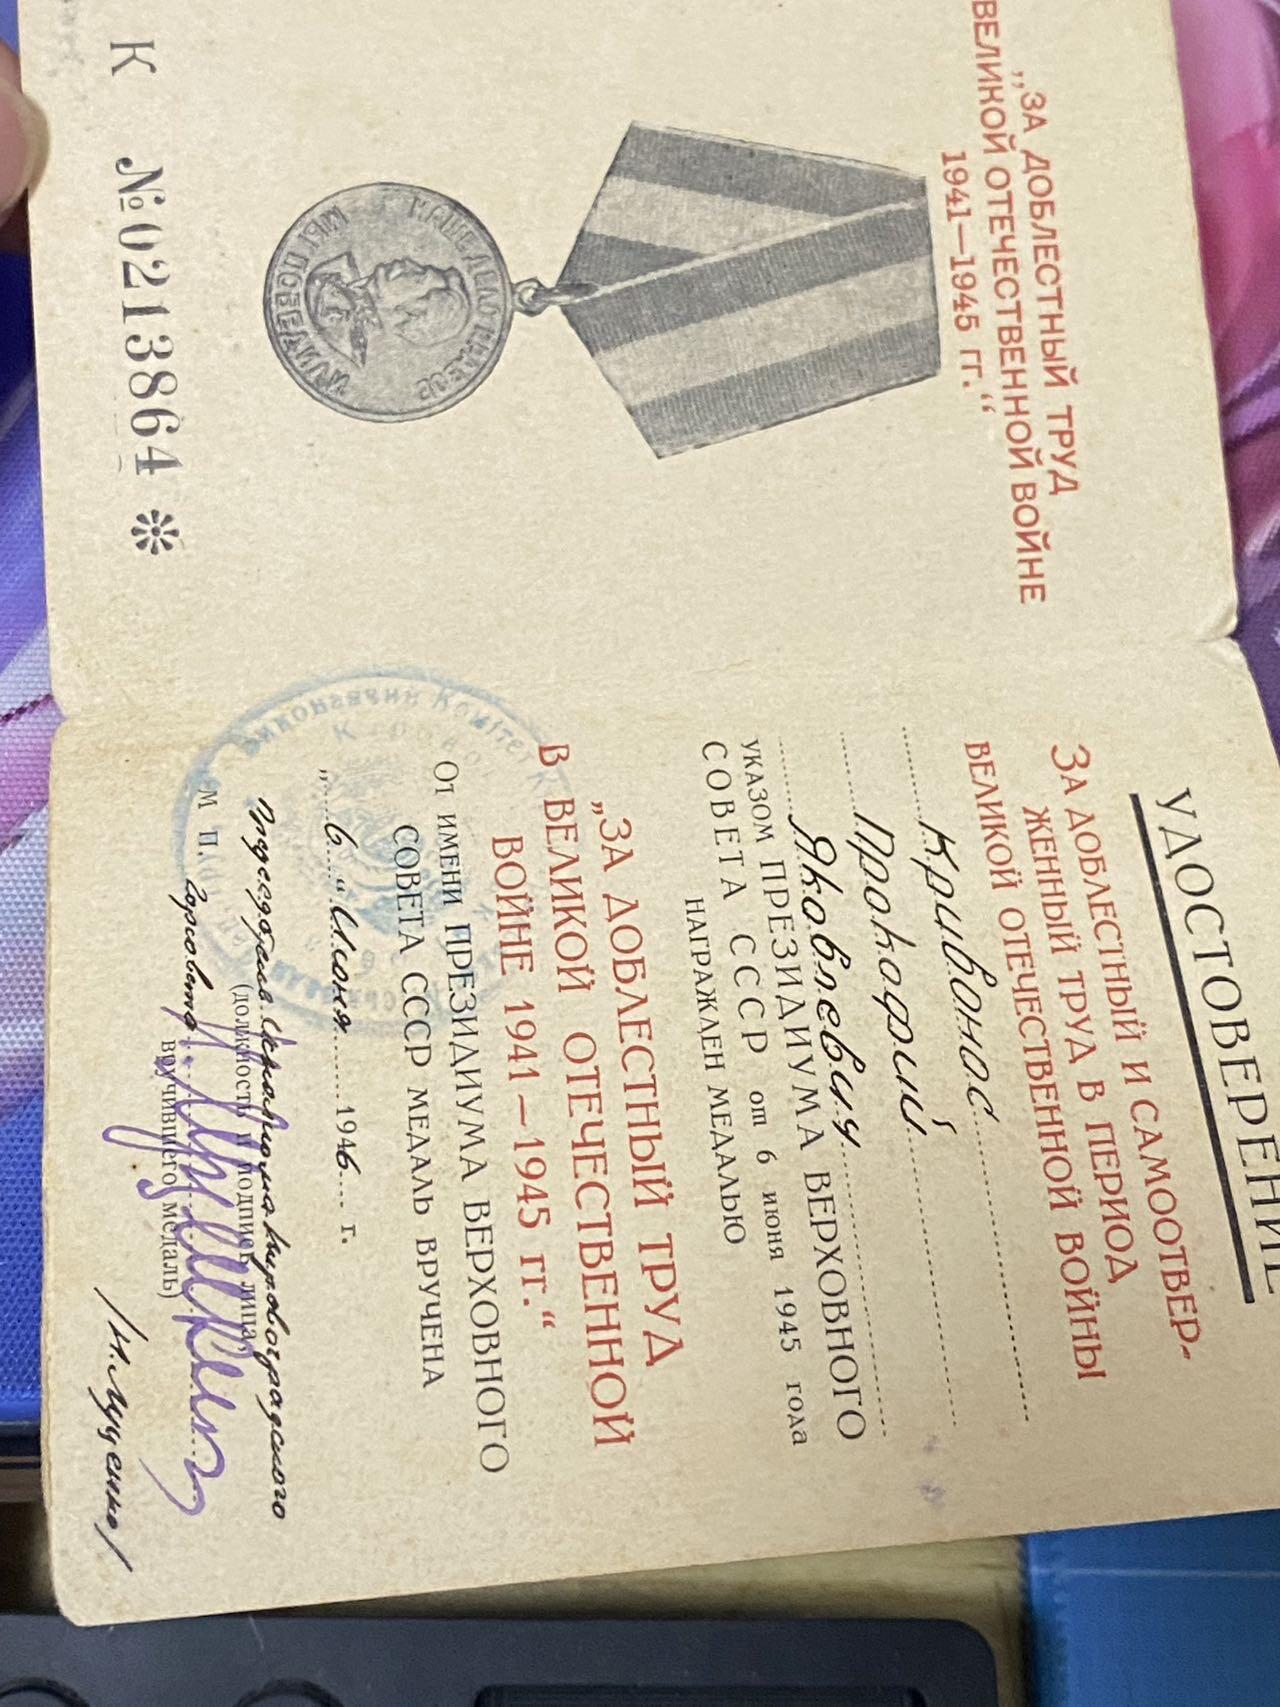 „ЗА ДОБЛЕСТНЫЙ ТРУД
ВЕЛИКОЙ ОТЕЧЕСТВЕННОЙ ВОЙНЕ
1941—1945 гг.“
НАШЕ ДЕЛО ПРАВОЕ
МЫ ПОБЕДИЛИ
К №0213864 *
УДОСТОВЕРЕНИЕ
ЗА ДОБЛЕСТНЫЙ И САМООТВЕР-
ЖЕННЫЙ ТРУД В ПЕРИОД
ВЕЛИКОЙ ОТЕЧЕСТВЕННОЙ ВОЙНЫ
Кривонос
Прокофий
Яковлевич
УКАЗОМ ПРЕЗИДИУМА ВЕРХОВНОГО
СОВЕТА СССР от 6 июня 1945 года
НАГРАЖДЕН МЕДАЛЬЮ
„ЗА ДОБЛЕСТНЫЙ ТРУД
В ВЕЛИКОЙ ОТЕЧЕСТВЕННОЙ
ВОЙНЕ 1941—1945 гг.“
От имени ПРЕЗИДИУМА ВЕРХОВНОГО
СОВЕТА СССР МЕДАЛЬ ВРУЧЕНА
„6“ Июня 1946 г.
Виконавчий Комітет
М П.
Кировоградского
горсовета
(должность и подпись лица,
вручившего медаль)
/Н. Луценко/